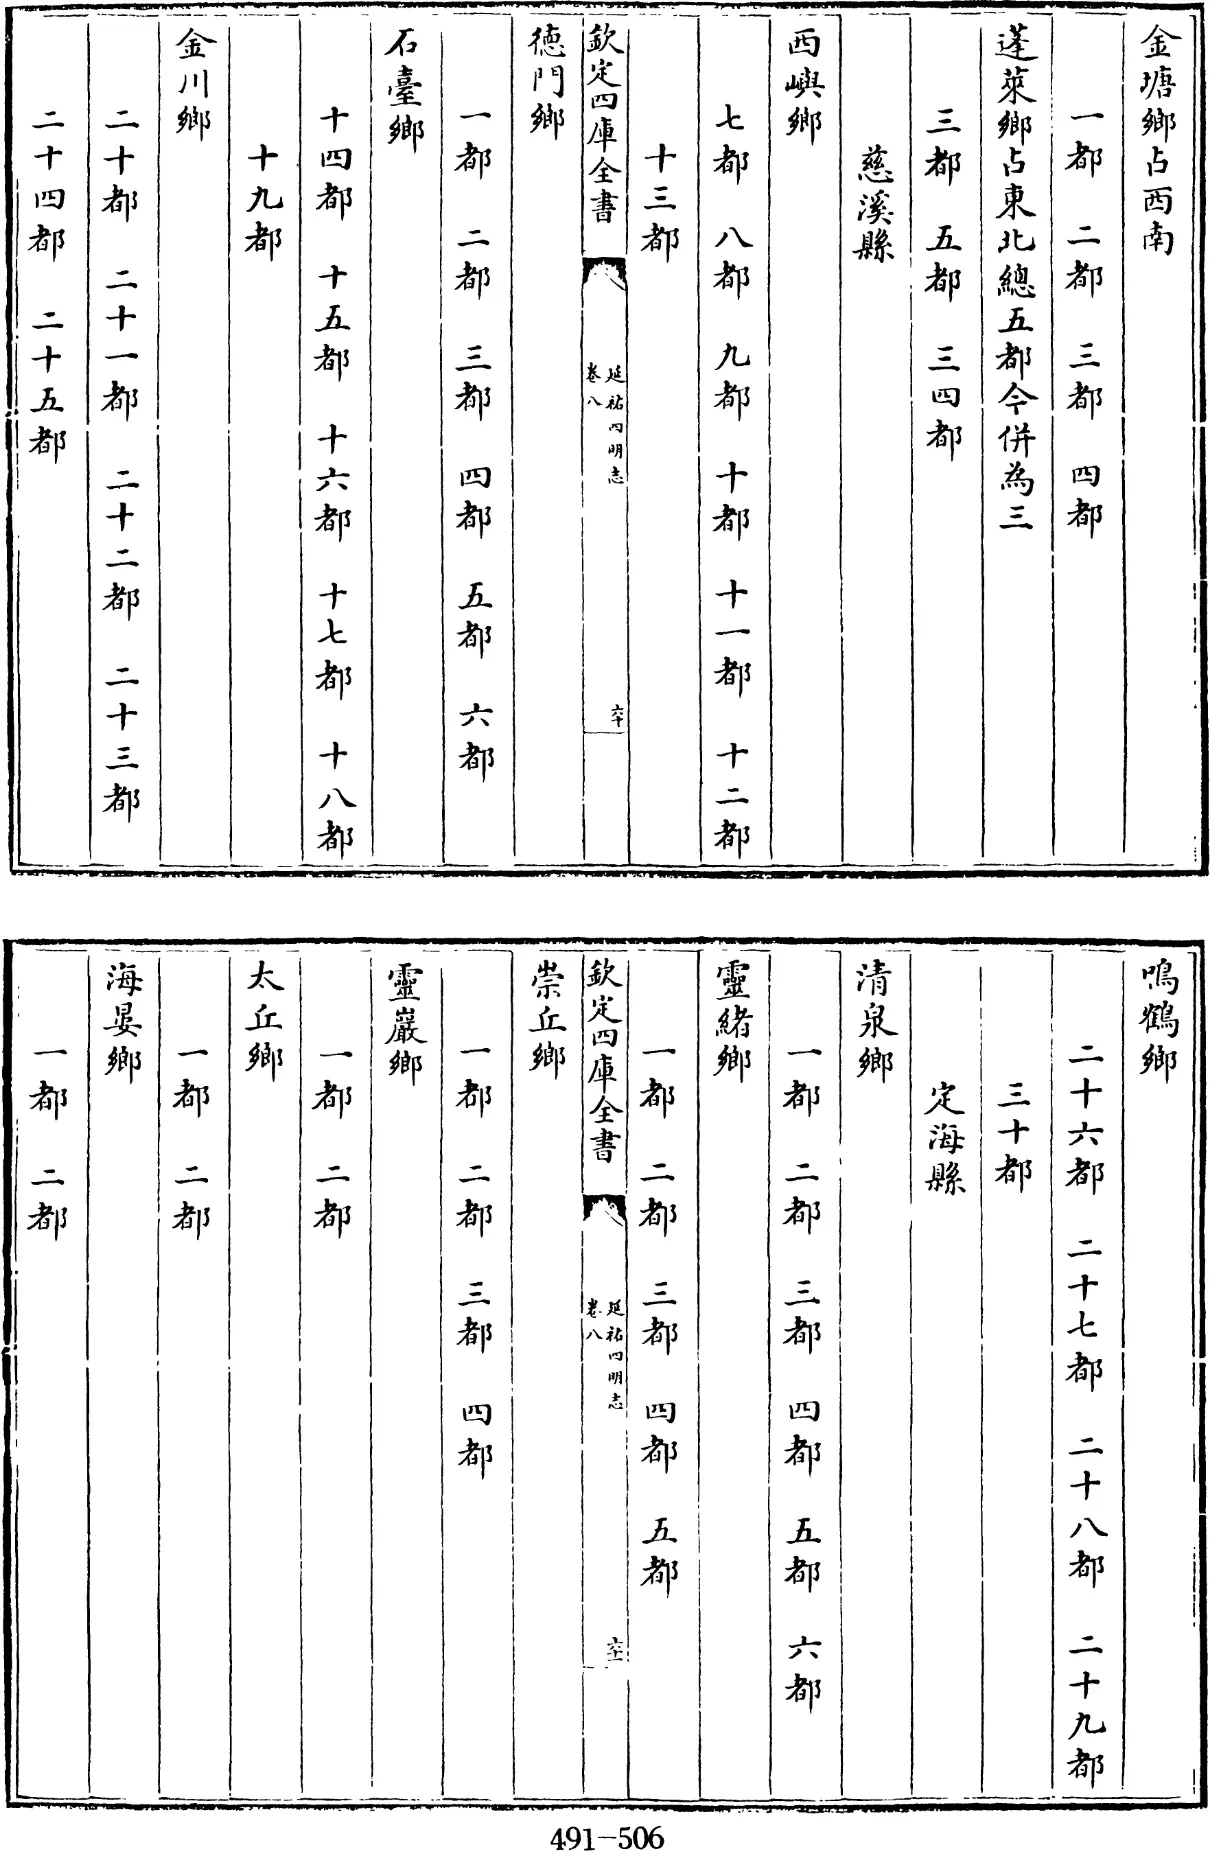 金塘鄉占西南
一都　二都　三都　四都
蓬萊鄉占東北總五都今併為三
三都　五都　三四都
慈溪縣
西嶼鄉
七都　八都　九都　十都　十一都　十二都
十三都
欽定四庫全書
延祐四明志
卷八
六十
德門鄉
一都　二都　三都　四都　五都　六都
石臺鄉
十四都　十五都　十六都　十七都　十八都
十九都
金川鄉
二十都　二十一都　二十二都　二十三都
二十四都　二十五都
鳴鶴鄉
二十六都　二十七都　二十八都　二十九都
三十都
定海縣
清泉鄉
一都　二都　三都　四都　五都　六都
靈緒鄉
一都　二都　三都　四都　五都
欽定四庫全書
延祐四明志
卷八
六十一
崇丘鄉
一都　二都　三都　四都
靈巖鄉
一都　二都
太丘鄉
一都　二都
海晏鄉
一都　二都
491-506